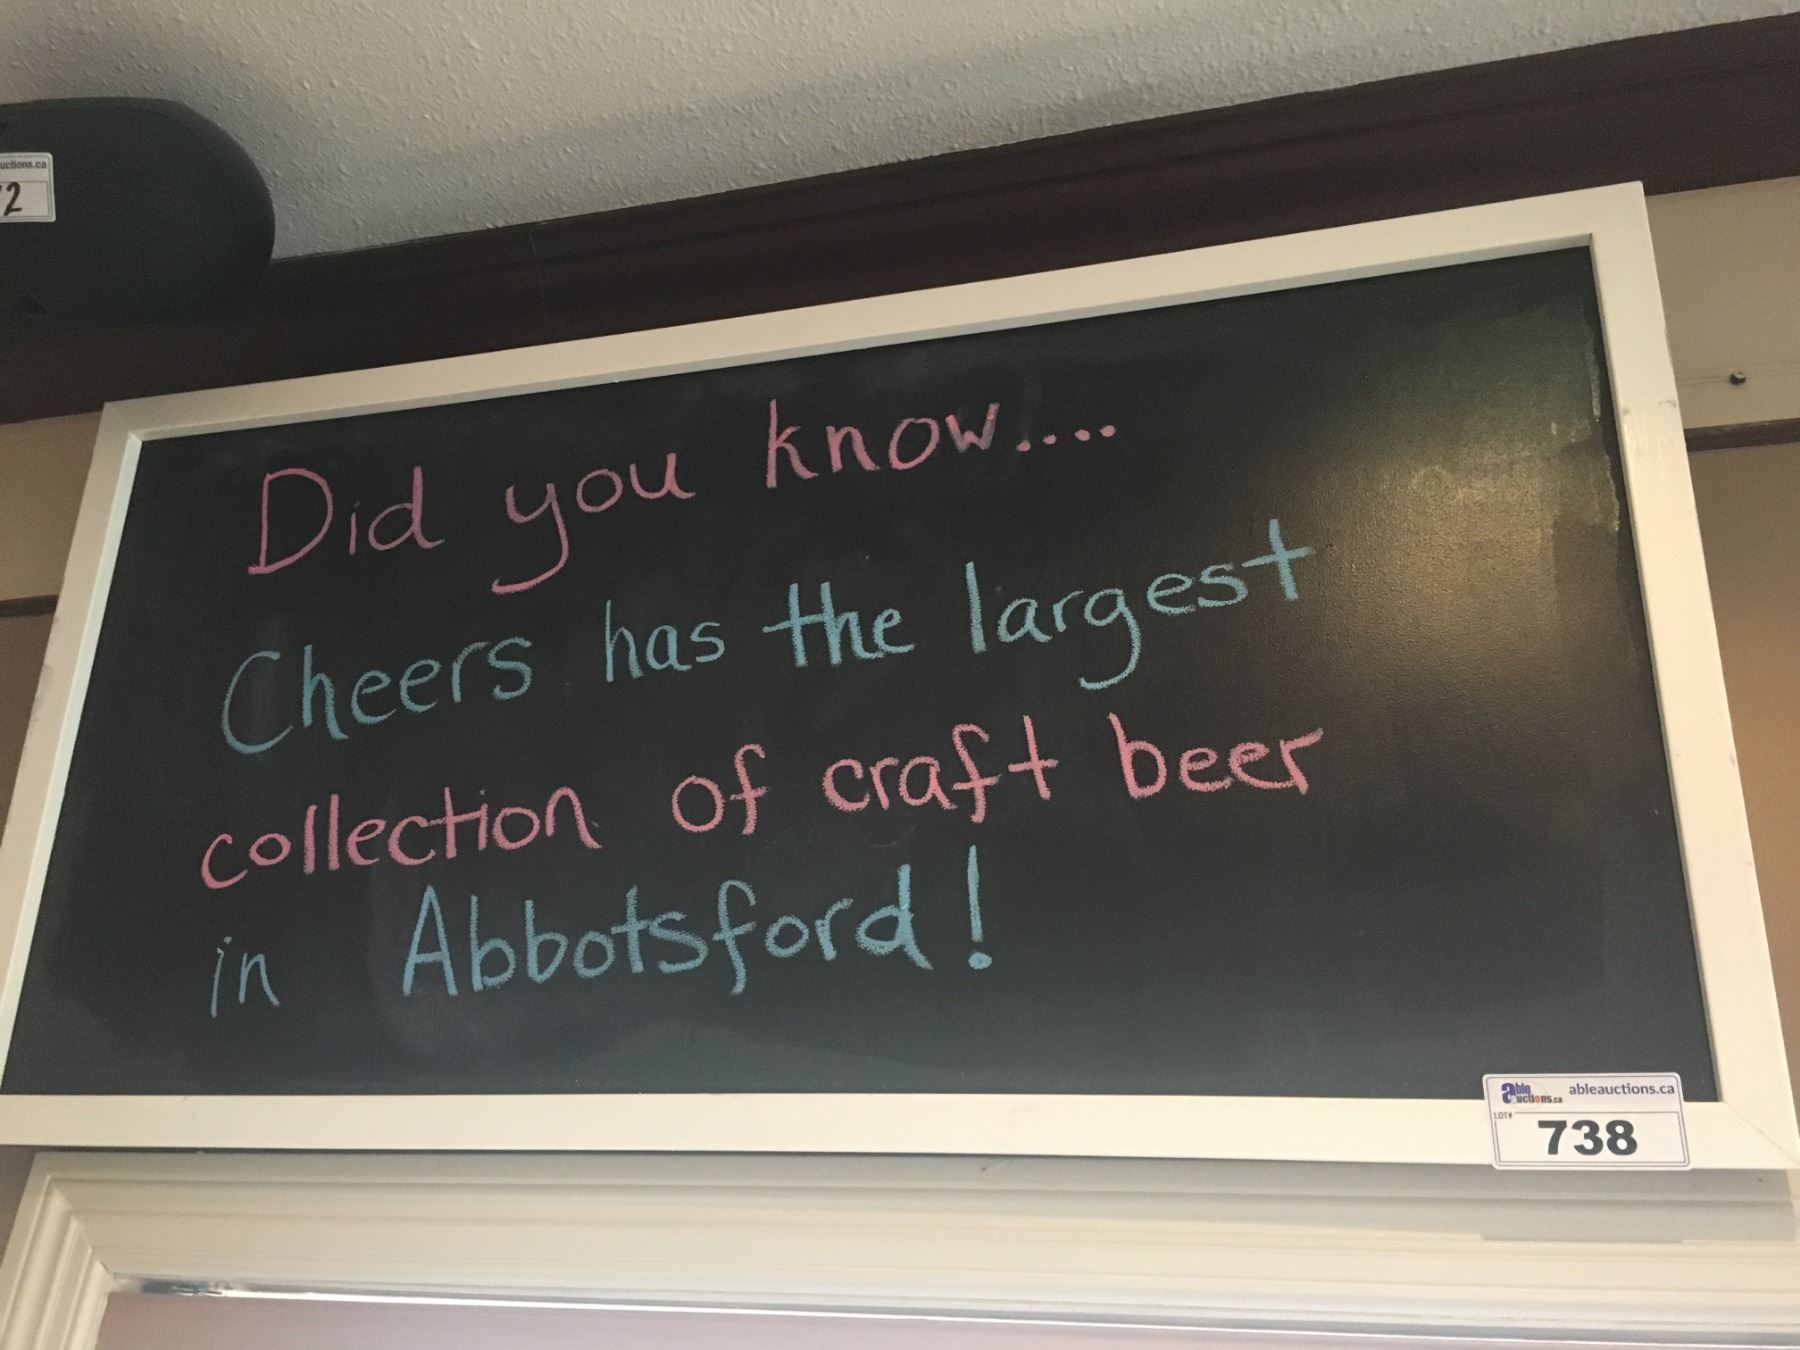 uctions.ca
2
Did you know....
Cheers has the largest
collection of craft beer
in Abbotsford!
able auctions.ca ableauctions.ca
LOT#
738